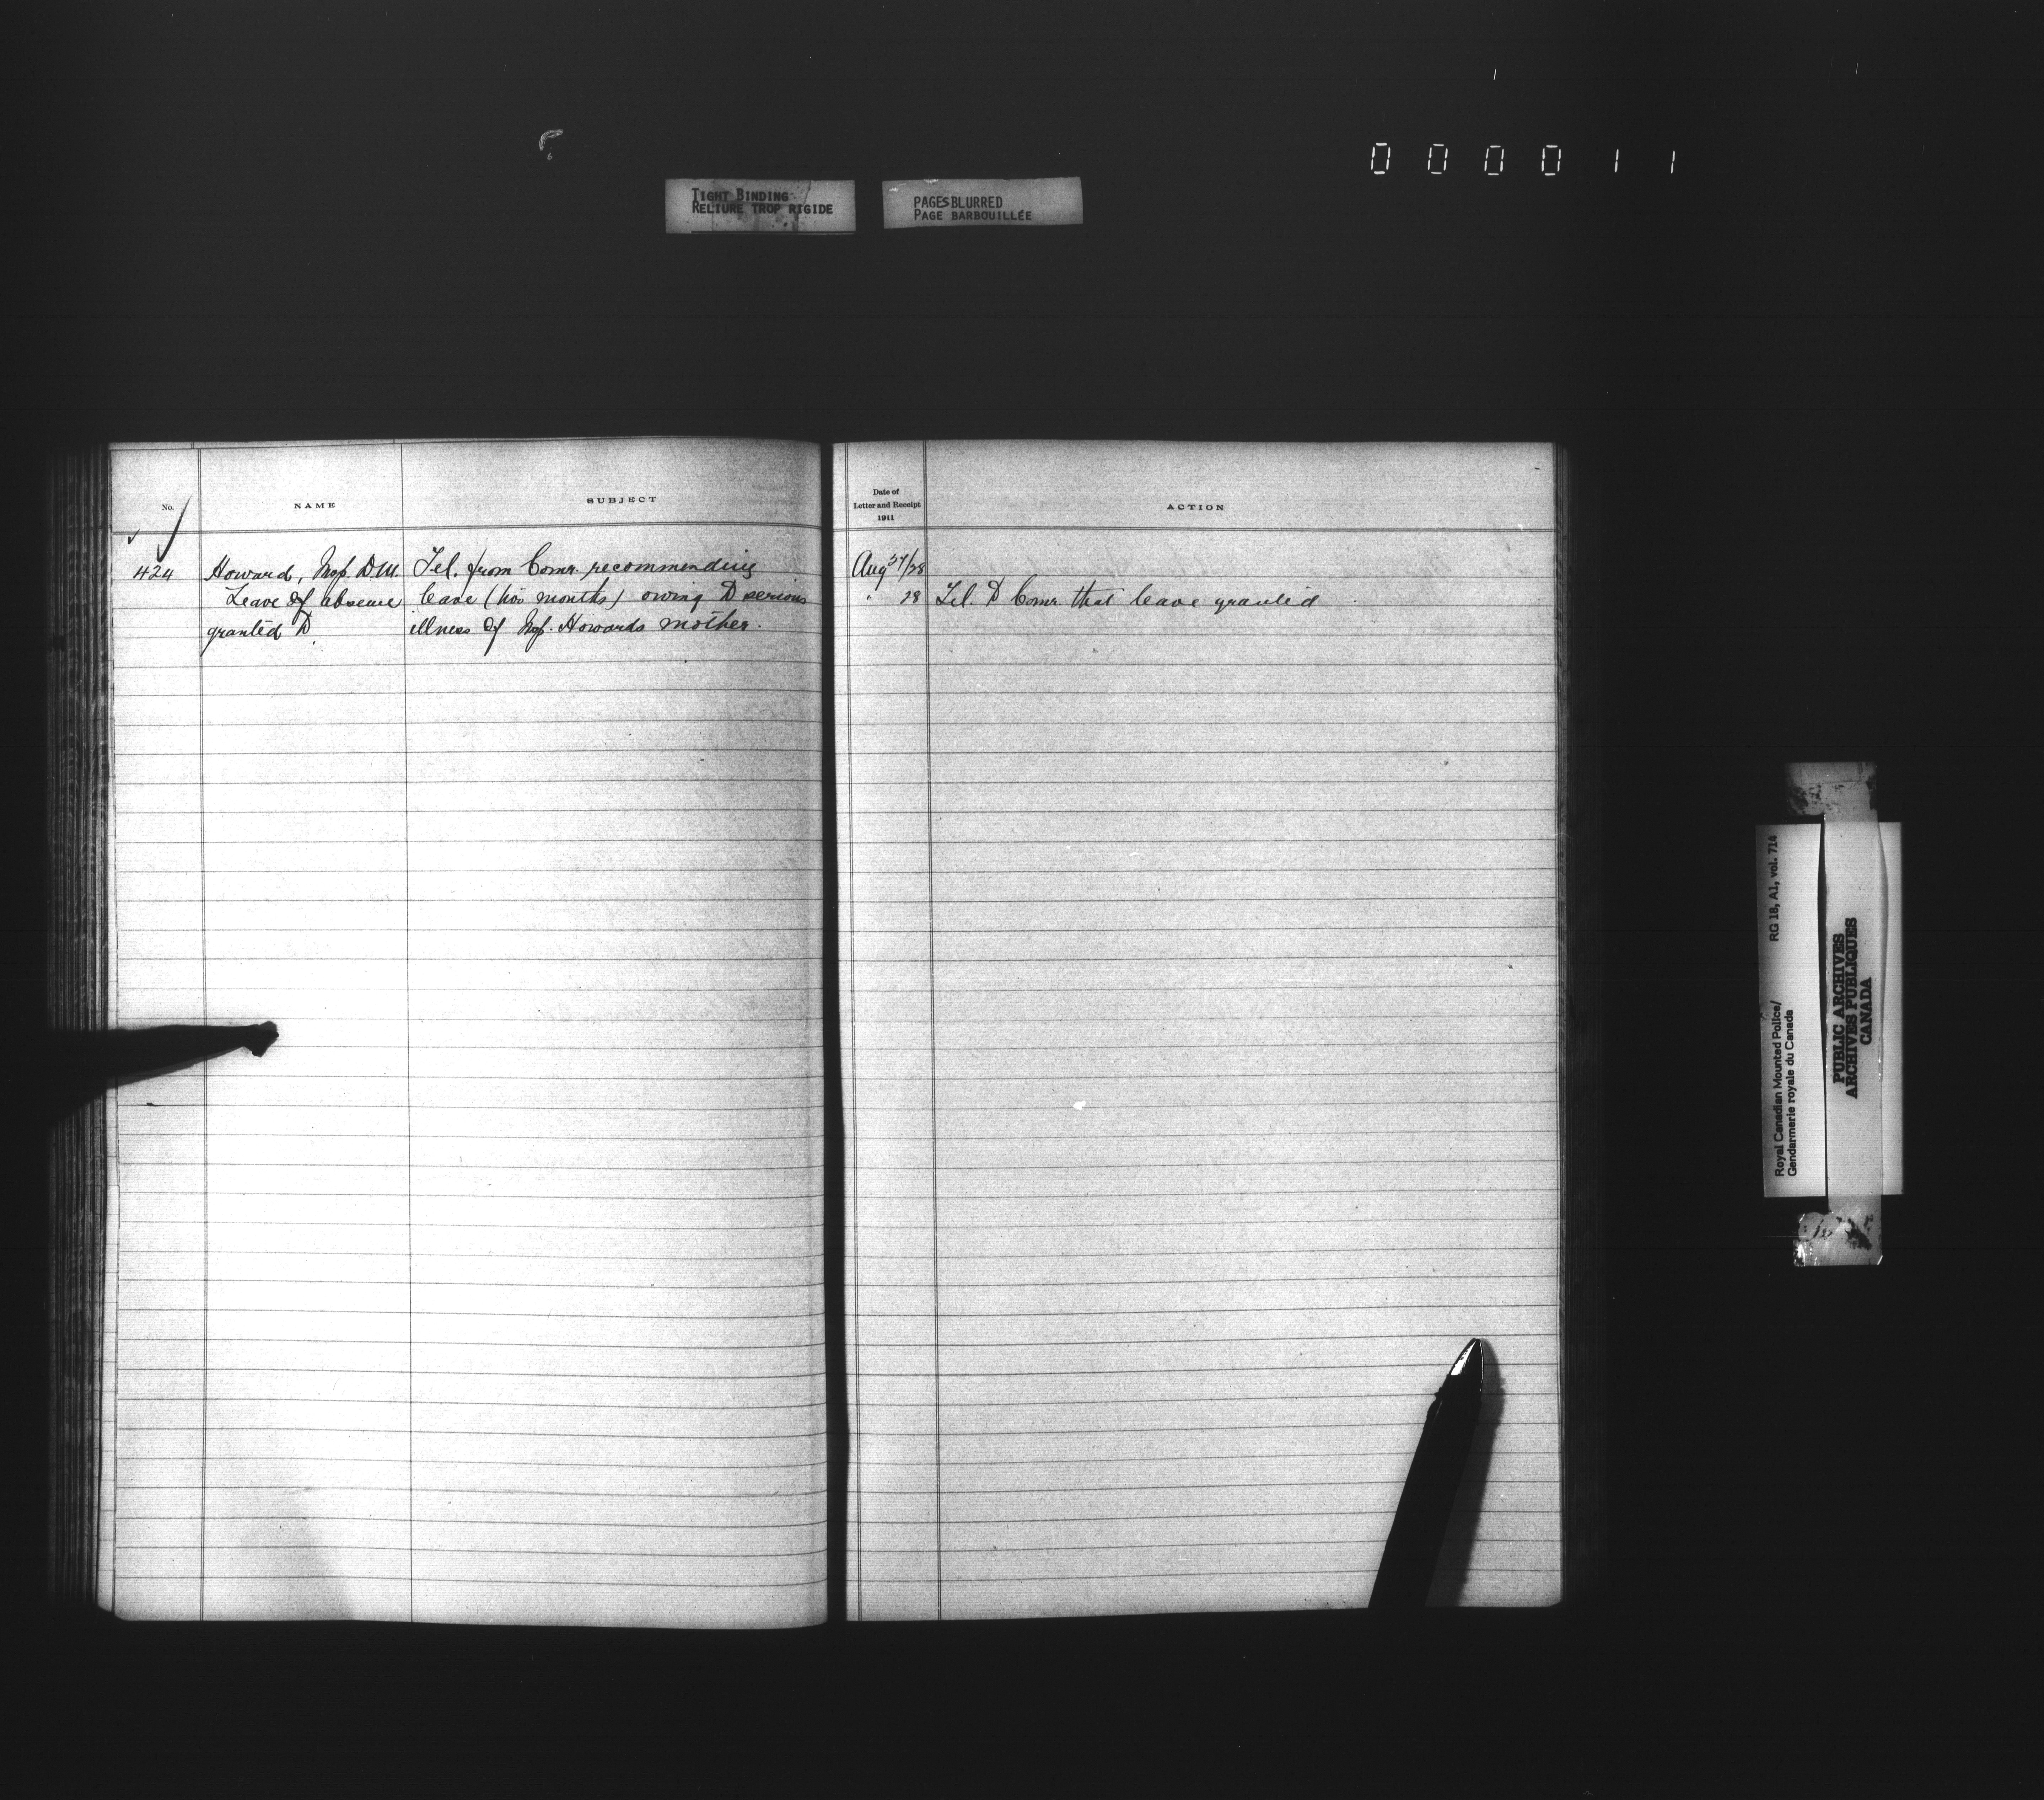 000011
TIGHT BINDING
RELIURE TROP RIGIDE
PAGES BLURRED
PAGE BARBOUILLÉE
No.
NAME
SUBJECT
Date of
Letter and Receipt
1911
ACTION
424
Howard, Insp. D.M.
Leave of absence
granted to
Tel. from Comr. recommending
leave (two months) owing to serious
illness of Insp. Howards mother.
Aug 27/28
" 28
Tel. to Comr. that leave granted
RG 18, A1, vol. 714
Royal Canadian Mounted Police/
Gendarmerie royale du Canada
PUBLIC ARCHIVES
ARCHIVES PUBLIQUES
CANADA